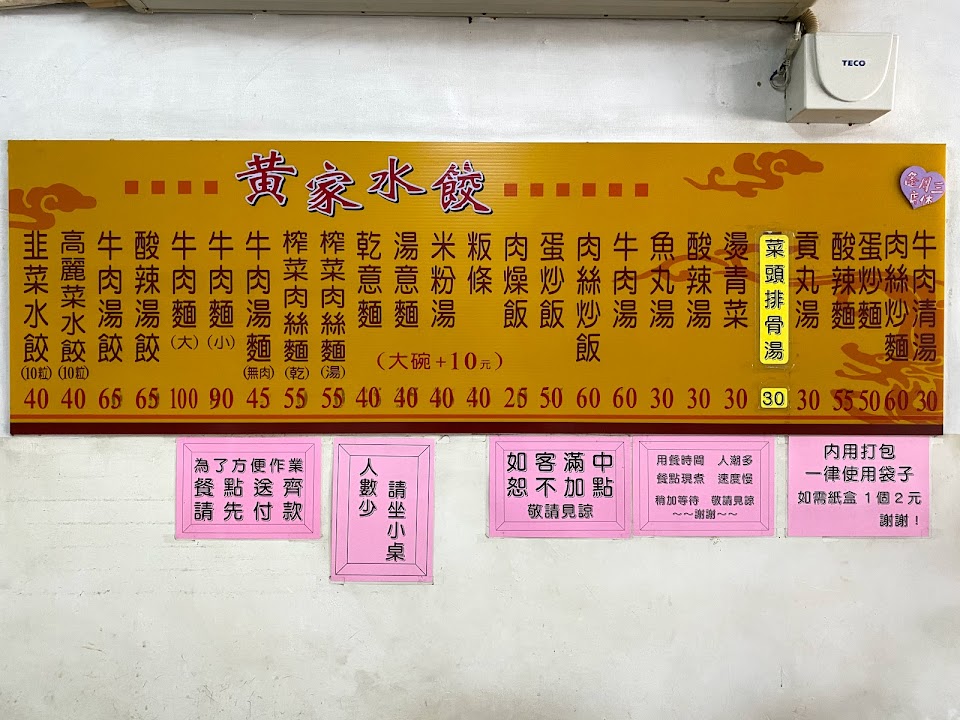 TECO
黃家水餃
逢月三
店休
韭菜水餃(10粒) 40
高麗菜水餃(10粒) 40
牛肉湯餃 65
酸辣湯餃 65
牛肉麵(大) 100
牛肉麵(小) 90
牛肉湯麵(無肉) 45
榨菜肉絲麵(乾) 55
榨菜肉絲麵(湯) 55
乾意麵 40
湯意麵 40
米粉湯 40
粄條 40
(大碗+10元)
肉燥飯 25
蛋炒飯 50
肉絲炒飯 60
牛肉湯 60
魚丸湯 30
酸辣湯 30
燙青菜 30
菜頭排骨湯 30
貢丸湯 30
酸辣麵 55
蛋炒麵 50
肉絲炒麵 60
牛肉清湯 30
為了方便作業
餐點送齊
請先付款
人數少
請坐小桌
如客滿中
恕不加點
敬請見諒
用餐時間 人潮多
餐點現煮 速度慢
稍加等待 敬請見諒
～～謝謝～～
內用打包
一律使用袋子
如需紙盒1個2元
謝謝!